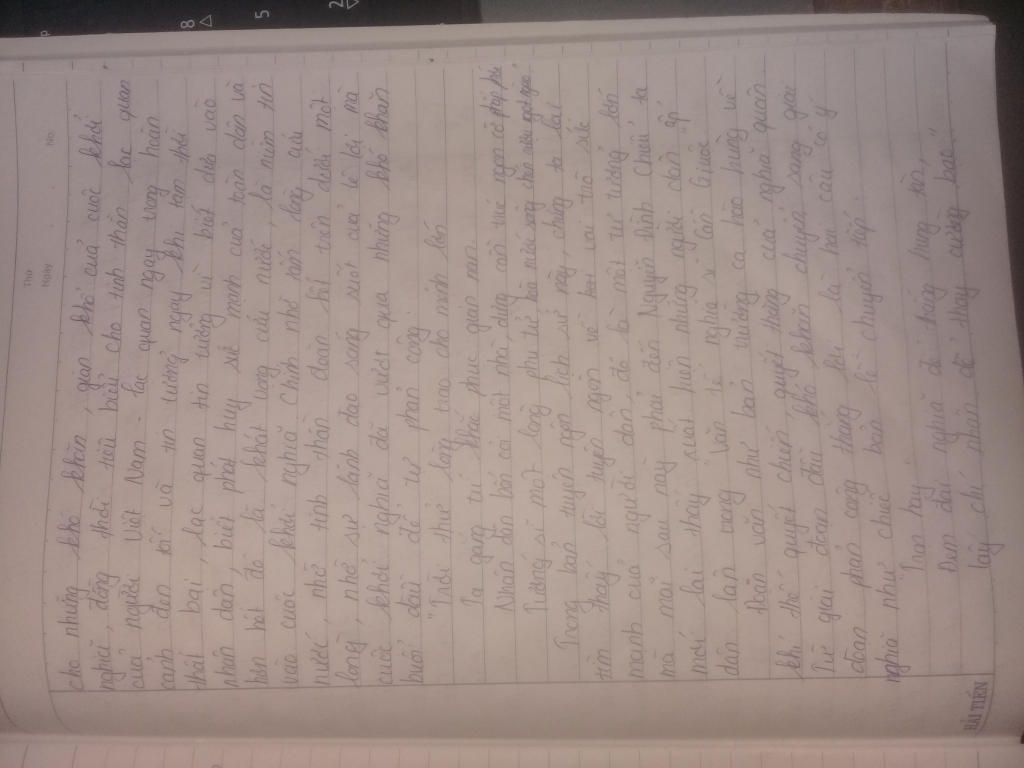 Thứ
Ngày
No.
cho những khó khăn, gian khổ của cuộc khởi
nghĩa, đồng thời tiêu biểu cho tinh thần lạc quan
của người Việt Nam - lạc quan ngay trong hoàn
cảnh đen tối và tin tưởng ngay khi tạm thời
thất bại, lạc quan tin tưởng vì biết dựa vào
nhân dân, biết phát huy sức mạnh của toàn dân và
hơn hết đó là khát vọng cứu nước, là niềm tin
vào cuộc khởi nghĩa. Chính nhờ tấm lòng cứu
nước, nhờ tinh thần đoàn kết trên dưới một
lòng, nhờ sự lãnh đạo sáng suốt của Lê Lợi mà
cuộc khởi nghĩa đã vượt qua những khó khăn
buổi đầu để tự phản công.
"Trời thử lòng trao cho mệnh lớn
Ta gắng trí khắc phục gian nan.
Nhân dân bốn cõi một nhà, dựng cần trúc ngọn cờ phấp phới
Tướng sĩ một lòng phụ tử, hòa nước sông chén rượu ngọt ngào.
Trong loạn tuyên ngôn lịch sử này, chúng ta lại
tìm thấy lời tuyên ngôn về vai trò sức
mạnh của người dân, đó là một tư tưởng lớn
mà mãi sau này phải đến Nguyễn Đình Chiểu ta
mới lại thấy xuất hiện những người dân "ấp
dân lân" trong "Văn tế nghĩa sĩ Cần Giuộc"
Đoạn văn như bản tráng ca hào hùng về
khí thế quyết chiến quyết thắng của nghĩa quân.
Từ giai đoạn đầu khó khăn chuyển sang giai
đoạn phản công thắng lợi là hai câu có ý
nghĩa như chiếc bản lề chuyển tiếp.
"Trọn hay
Đem đại nghĩa để thắng hung tàn,
Lấy chí nhân để thay cường bạo."
HẢI TIẾN
8
5
2